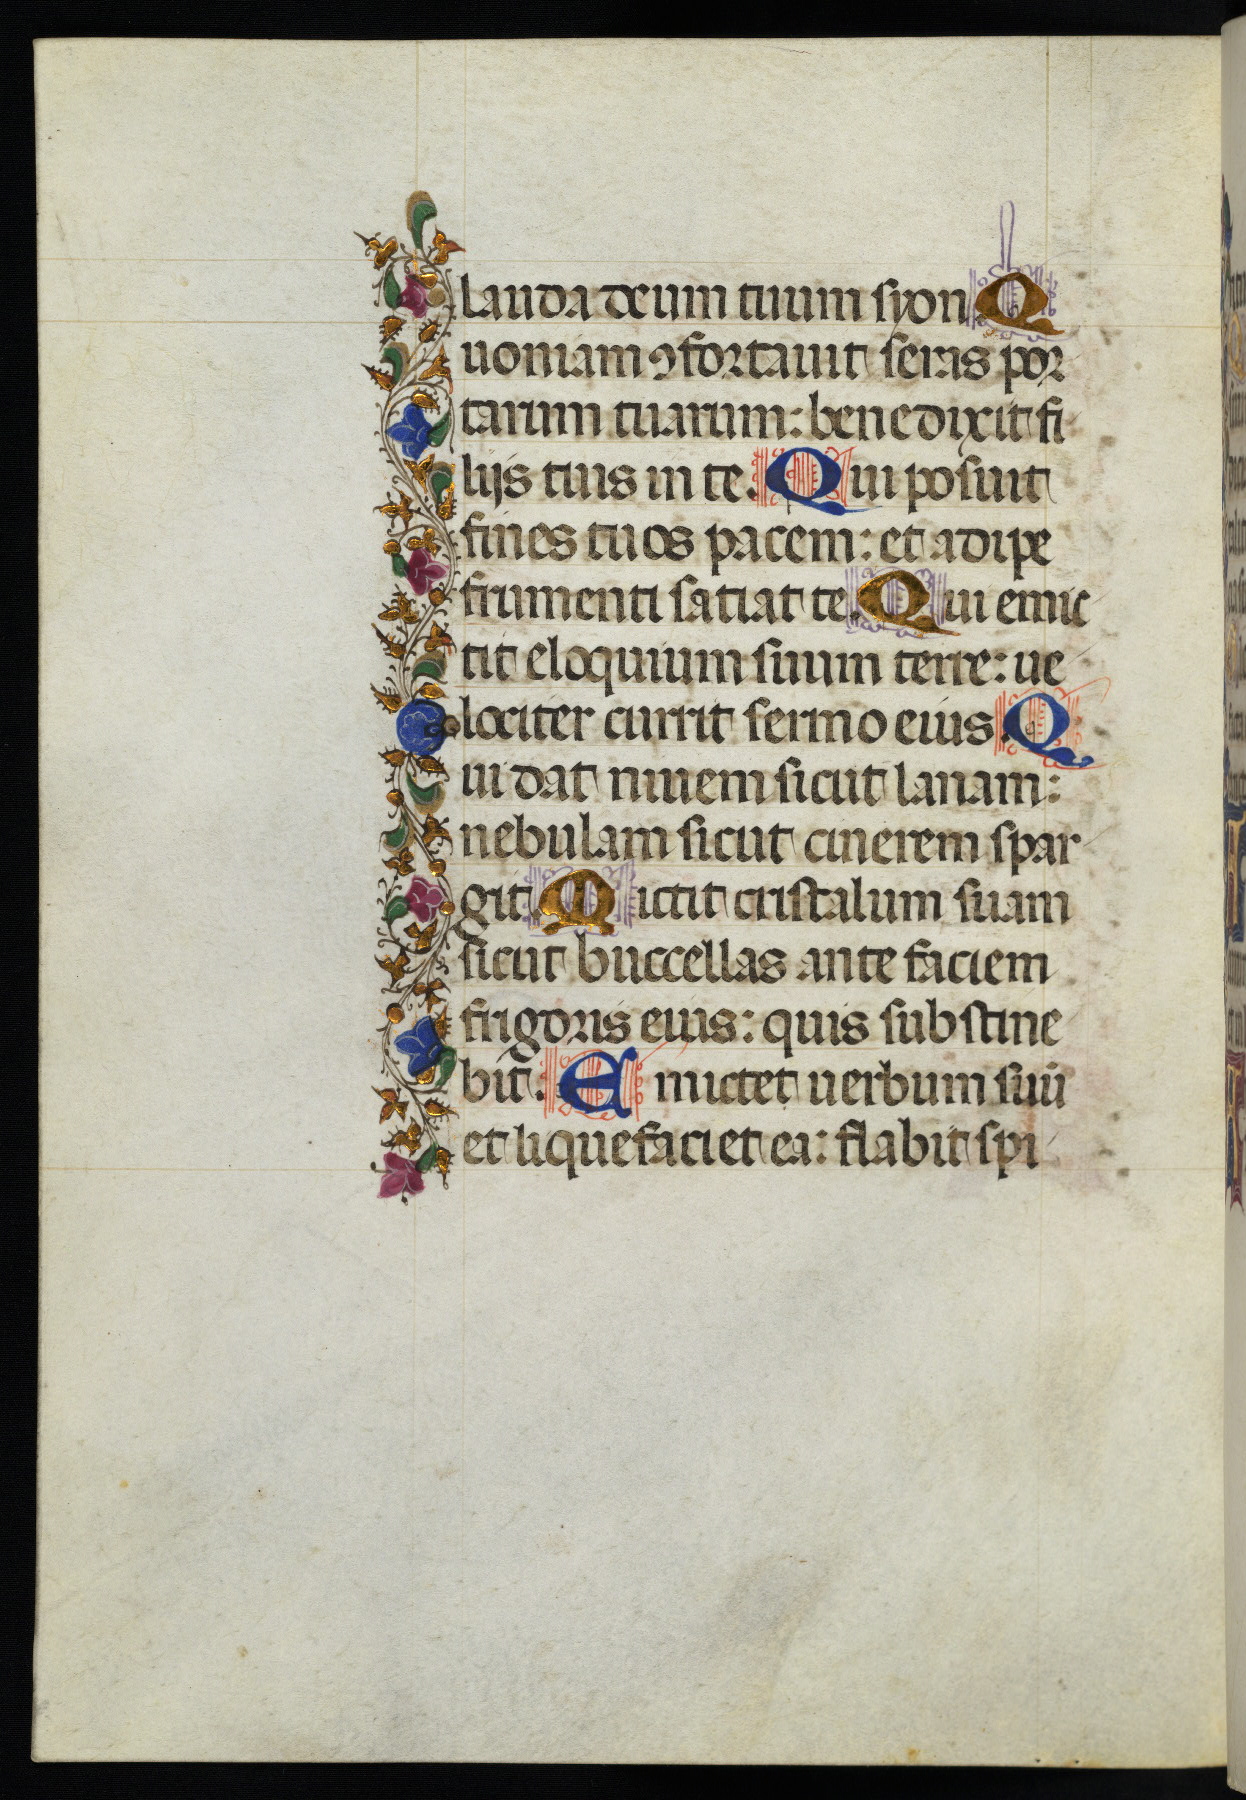 lauda deum tuum syon Q
uoniam ꝯfortauit seras por
tarum tuarum: benedixit fi
lijs tuis in te. Qui posuit
fines tuos pacem: et adipe
frumenti satiat te. Qui emic
tit eloquium suum terre: ue
lociter currit sermo eius. Q
ui dat niuem sicut lanam:
nebulam sicut cinerem spar
git. Mictit cristalum suam
sicut buccellas ante faciem
frigoris eius: quis substine
bit. Emictet uerbum suū
et liquefaciet ea: flabit spi